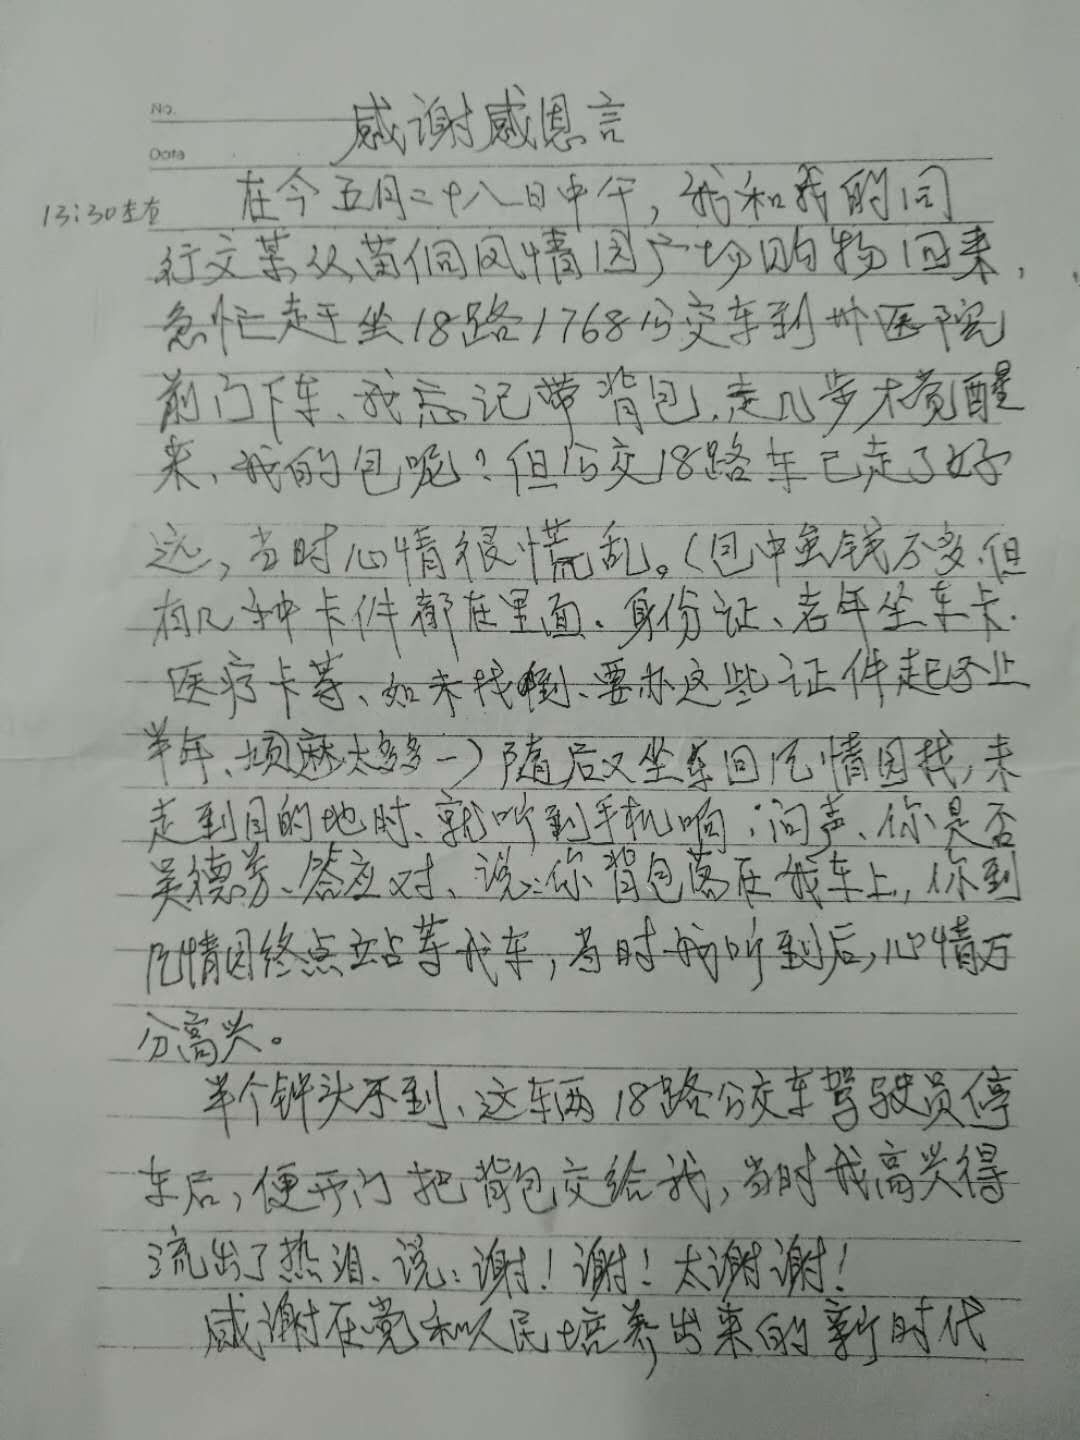 No.
感谢感恩言
Date
13:30左右
在今五月二十八日中午，我和我的同
行文某从苗侗风情园广场购物回来，
急忙赶于坐18路1768公交车到州医院
前门下车、我忘记带背包，走几步才觉醒
来、我的包呢？但公交18路车已走了好
远，当时心情很慌乱。（包中虽钱不多，但
有几种卡件都在里面、身份证、老年坐车卡.
医疗卡等、如未找倒、要办这些证件起不止
半年、烦麻太多多一）随后又坐车回风情园找，未
走到目的地时、就听到手机响；问声、你是否
吴德芳、答应对、说：你背包落在我车上，你到
风情园终点站等我车，当时我听到后，心情万
分高兴。
半个钟头不到、这车两18路公交车驾驶员停
车后，便开门把背包交给我，当时我高兴得
流出了热泪、说：谢！谢！太谢谢！
感谢在党和人民培养出来的新时代